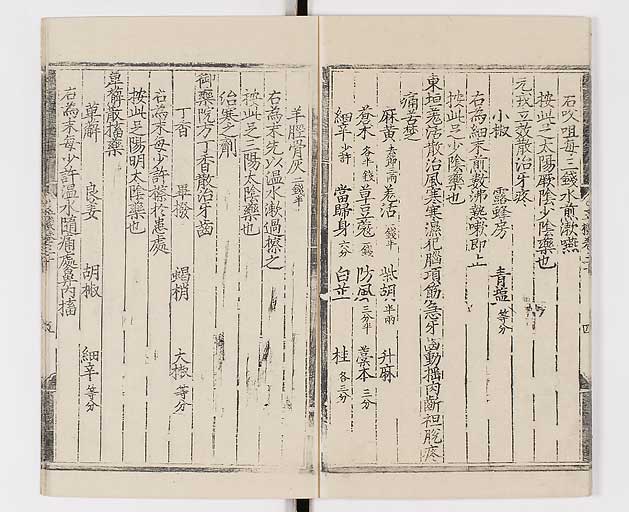 右㕮咀每三錢水煎漱嚥
按此太陽厥陰少陰藥也
元戎立效散治牙疼
小椒　露蜂房　青鹽等分
右為細末煎數沸熱嗽即止
按此足少陰藥也
東垣羌活散治風寒濕犯腦項筋急牙齒動搖肉齗袒脫疼
痛苦楚
麻黃去節三兩　羌活一錢半　柴胡半兩　升麻
蒼朮各半錢　草豆蔻一錢　防風三分半　藁本三分
細辛少許　當歸身六分　白芷　桂各三分
羊脛骨灰二錢半
右為末先以溫水漱過擦之
按此足三陽太陰藥也
治寒之劑
御藥院方丁香散治牙齒
丁香　蓽撥　蝎梢　大椒等分
右為末每少許擦於患處
按此足陽明太陰藥也
草薢散搐藥
草薢　良姜　胡椒　細辛等分
右為末每少許溫水隨痛處鼻內搐